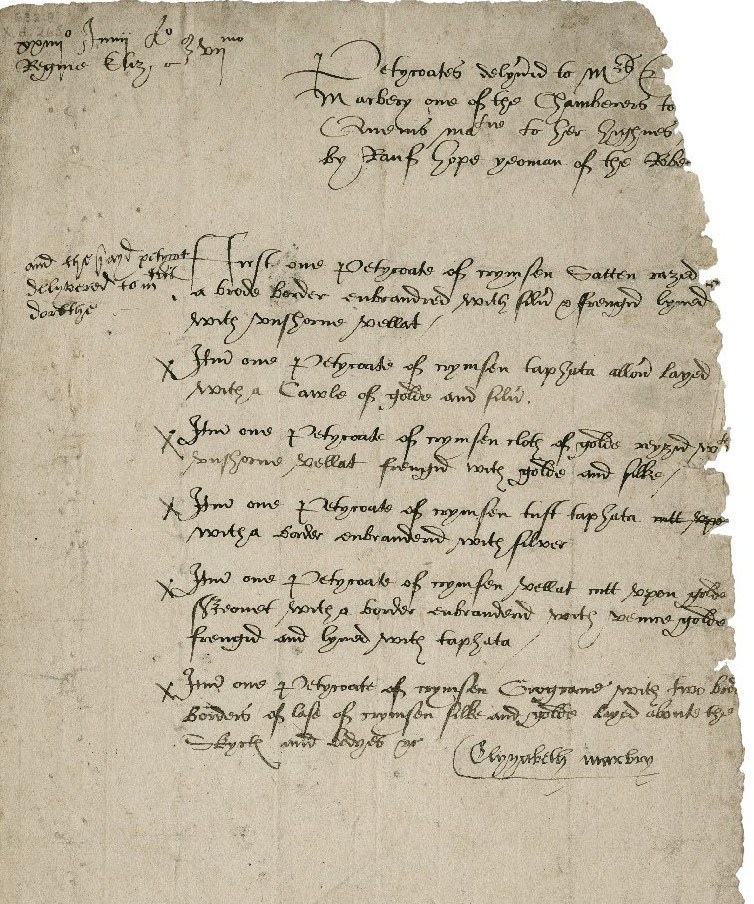 xxiiio Junij Ao Vijmo
Regine Eliz
Petycoates delyverid to Mrs E
Marbery one of the Chamberers to
Quenis matie to her highnes
by Rauf Hope yeoman of the Robe
and the sayd petycot
delyvered to mrs
dorithe
First one Petycoate of crymsen Satten razed
a brode border enbrandred with silver & frengid lyned
with vnshorne vellat
Itm one Petycoate of crymsen taphata allover layed
with a Cawle of golde and silver.
Itm one Petycoate of crymsen cloth of golde reyzid wt
vnshorne vellat frengid with golde and silke
Itm one Petycoate of crymsen tuft taphata cutt vpo
with a border enbranderid with silver
Itm one Petycoate of crymsen vellat cutt vpon golde
with a border enbranderid with venice golde
frengid and lyned with taphata
Itm one Petycoate of crymsen Grograine with two bro
borders of lase of crymsen silke and golde layed aboute the
Skyrth and bodyes &c
Elyzabeth marbry